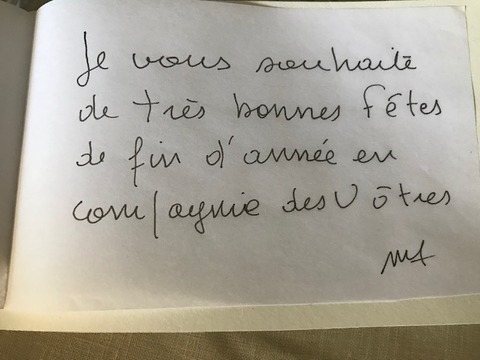 Je vous souhaite
de très bonnes fêtes
de fin d'année en
compagnie des Vôtres